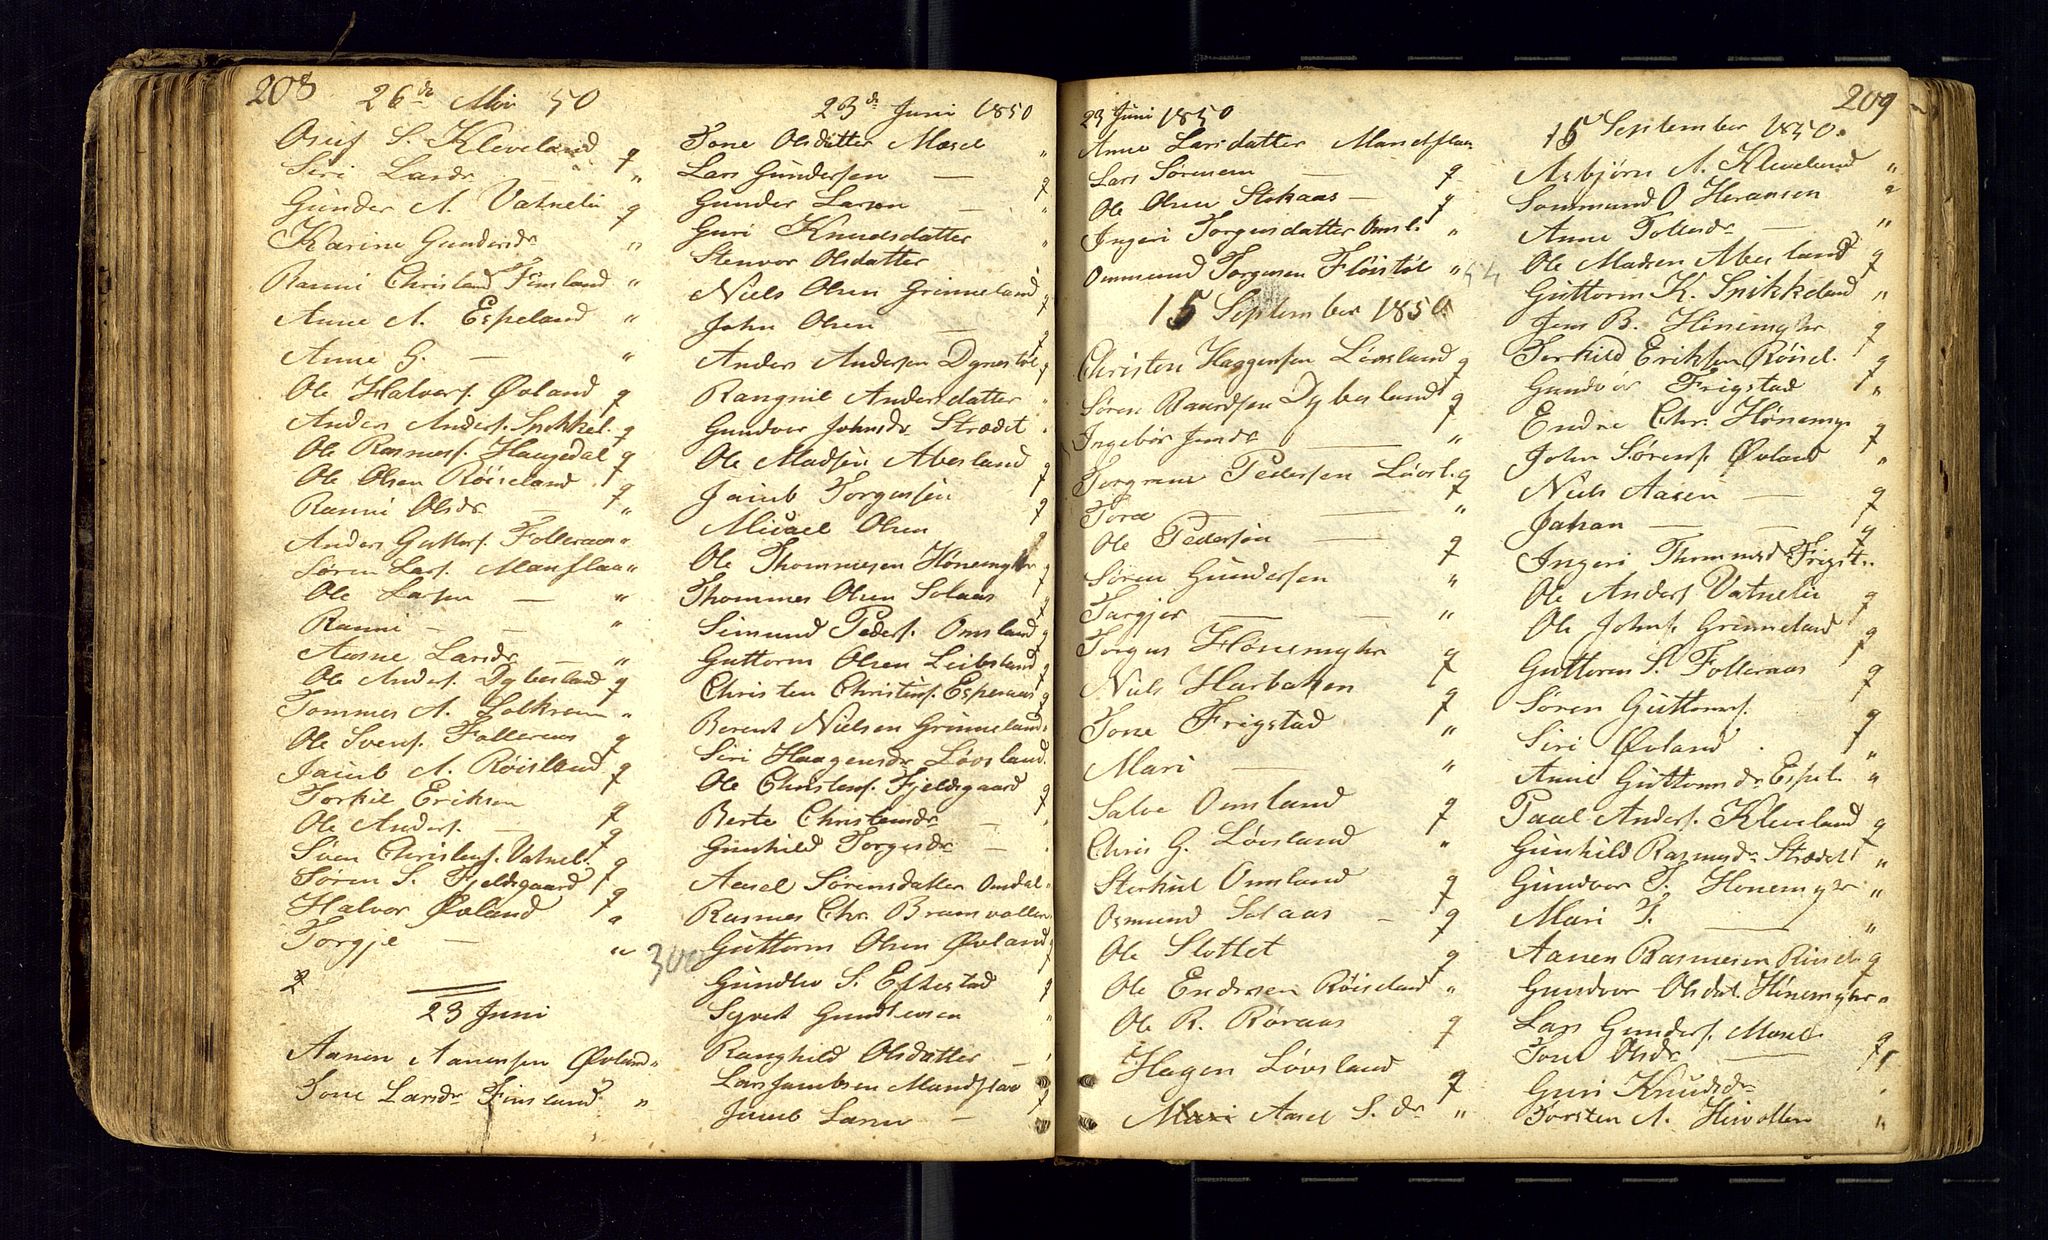 208
26de Mai 50
Osuf S. Kleveland g
Siri Larsdr — "
Gunder A. Vatneli g
Karine Gundersdr "
Ranni Christensd Finsland "
Anne A. Espeland "
Anne G. — "
Ole Halvors. Øvland g
Anders Anders. Spikkel. g
Ole Rasmus. Haugedal g
Ole Olsen Röiseland g
Ranni Olsdr — "
Anders Guttors. Folleraas "
Søren Lars. Manflaa "
Ole Larsen — "
Ranni — — "
Aasne Larsdr — "
Ole Anders. Dybesland g
Tommes A. "
Ole Svens. Folleraas g
Jacub A. Röisland g
Torkil Eriksen g
Ole Anders. — g
Sven Christens. Vatnel. g
Søren S. Fjeldsgaard g
Halvor Øvland "
Torgje — "
2
23 Juni
Aanen Aanensen Øvland "
Tone Larsdr Finsland "
23de Juni 1850
Tone Olsdatter Mæsel "
Lars Gundersen — g
Gunder Larsen — "
Guri Knudsdatter "
Stenvor Olsdatter
Niels Olsen Grinneland g
John Olsen — g
Anders Andersen Dynestöl g
Rangnil Andersdatter "
Gundvor Johnsdr Strædet "
Ole Madsen Abesland g
Jacub Torgersen g
Micael Olsen g
Ole Thommesen Hönemyhr g
Thommes Olsen Solaas g
Simund Peders. Omsland g
Guttorm Olsen Leibsland g
Christen Christens. Esperaas g
Berent Nielsen Grinneland "
Siri Haagensdr Løvsland "
Ole Christens. Fjeldsgaard g
Berte Christensdr — "
Gunhild Torgersdr — "
Aasel Sörensdatter Omdal "
Rasmus Chr. Bramvollen "
300 Guttorm Olsen Øvland g
Gundlev S. Eftestad g
Syvert Gundlevsen "
Ranghild Olsdatter — "
Lars Jacubsen Mandflaa g
Jacub Larsen —
209
23 Juni 1850
Anne Larsdatter Mandflaa
Lars Sörensen — g
Ole Olsen Stokaas — g
Ingeri Torgersdatter Omsl. "
Ommund Torgersen Flöistöl " 54
15 September 1850
Christen Haagensen Lövsland g
Sören Baardsen Dybesland g
Ingebör Jensdr — "
Torgrim Pedersen Lövsl. g
Tore — — "
Ole Pedersen — g
Sören Gundersen "
Targjer — — "
Torgus Hönemyhr g
Niels Harbakken g
Tone Frigstad "
Mari — "
Salve Omsland g
Chris G. Lövsland "
Sterkul Omsland g
Osmund Solaas — g
Ole Slottet g
Ole Endresen Röiseland "
Ole R. Röraas g
Hagen Lövsland g
Mari Aasel S. dr "
15 September 1850
Asbjörn A. Kleveland "
Sommund O Heransen g
Anne Tollesdr — "
Ole Madsen Abesland g
Guttorm K. Spikkeland "
Jens B. Hönemyhr g
Torkild Eriksen Röisel. g
Gundvör Frigstad "
Endre Chr. Hönemy g
John Sörens. Øvland "
Niels Aasen — g
Johan — — g
Ingeri Thommesd Frigst. "
Ole Anders Vatneli g
Ole Johns. Grinneland g
Guttorm S. Folleraas g
Sören Guttorms. g
Siri Øvland "
Anne Guttormsdr Espel. "
Paal Anders. Kleveland g
Gunhild Rasmusdr Strædet "
Gundvor T. Hönemyhr "
Mari T. — "
Aanen Rasmusen Röisel. g
Gundvor Olsdat. Hönemyhr "
Lars Gunders. Mæsel g
Tone Olsdr — "
Guri Knudsdr "
Torsten A. Heivollen "